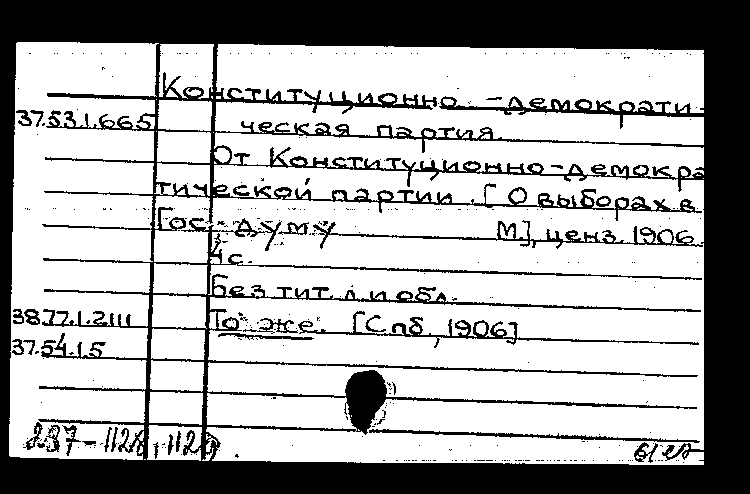 Конституционно-демократи-
37.53.1.665 ческая партия.
От Конституционно-демокра
тической партии. [О выборах в
Гос. думу М.], ценз. 1906.
4 с.
Без тит. л. и обл.
38.77.1.2111 То же. [Спб, 1906]
37.54.1.5